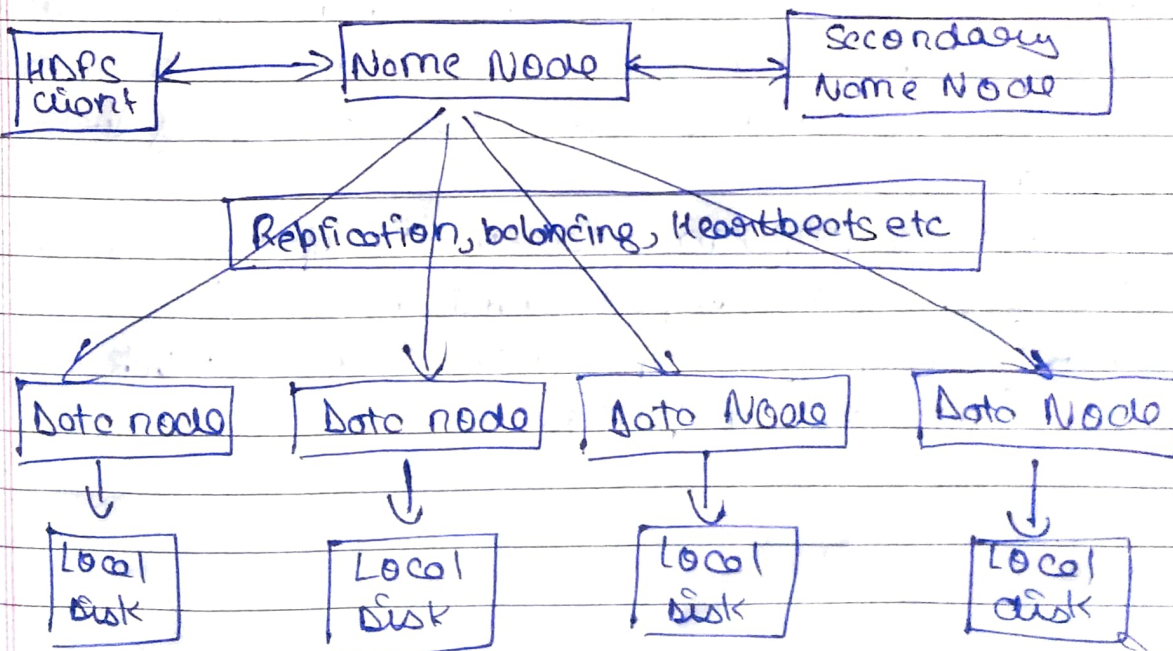 HDFS
client
Name Node
Secondary
Name Node
Replication, balancing, Heartbeats etc
Data node
Data node
Data Node
Data Node
Local
Disk
Local
Disk
Local
Disk
Local
disk